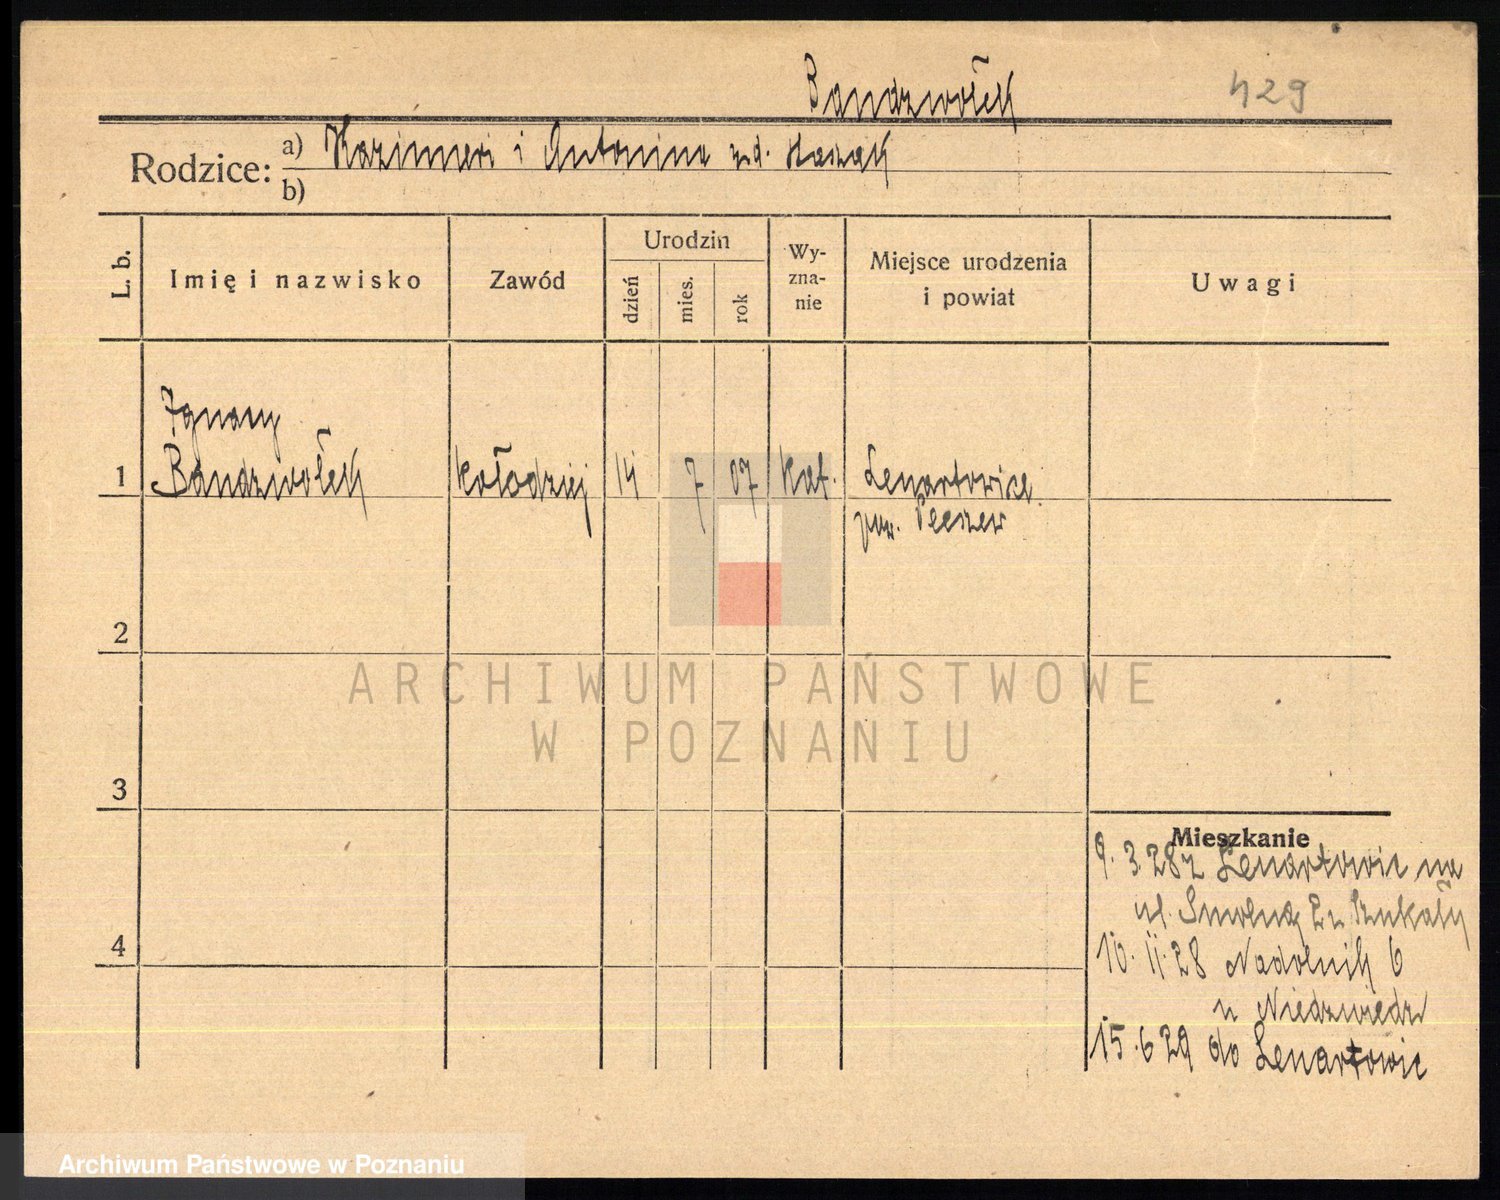 Bandzwołek
429
Rodzice: a) Kazimierz i Antonina zd.
b)
L. b.
Imię i nazwisko
Zawód
Urodzin
dzień
mies.
rok
Wy-
zna-
nie
Miejsce urodzenia
i powiat
Uwagi
Ignacy
1 Bandzwołek kołodziej 14 7 07 kat. Lenartowice
pow. Pleszew
2
3
4
Mieszkanie
9. 3. 28 z Lenartowic na
ul. Smolną 2 u Szukały
10. 11. 28 Nadolnik 6
u Niedzwiedz
15. 6 29 do Lenartowic
ARCHIWUM PAŃSTWOWE
W POZNANIU
Archiwum Państwowe w Poznaniu